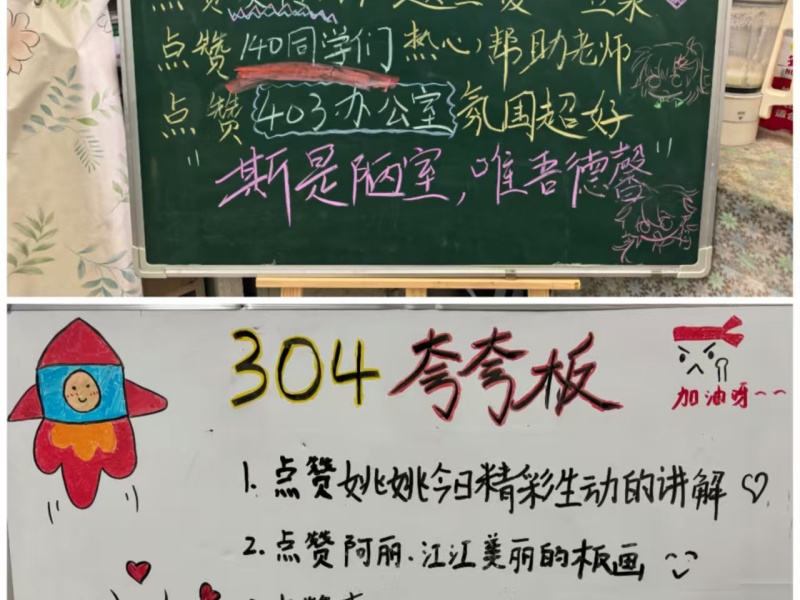 点赞
点赞 140同学们 热心,帮助老师
点赞 403办公室 氛围超好
"斯是陋室,唯吾德馨"
304 夸夸板
加油呀~~
1. 点赞姚姚今日精彩生动的讲解
2. 点赞阿丽·江江美丽的板画